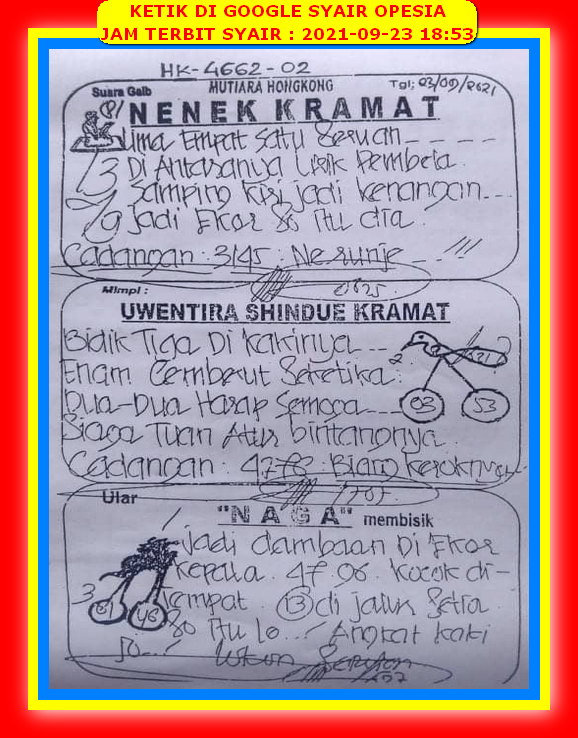 KETIK DI GOOGLE SYAIR OPESIA
JAM TERBIT SYAIR : 2021-09-23 18:53
HK-4662-02
Suara Gaib
MUTIARA HONGKONG
NENEK KRAMAT
Lima Empat satu Seruan
13 Di Antaranya Lirik Pembela
Samping Kiri jadi kenangan
79 jadi Ekor 80 Itu dia.
Cadangan: 3145:
Mimpi :
UWENTIRA SHINDUE KRAMAT
Bidik Tiga Di kakinya
Enam Cemberut Seketika.
2
Dua-Dua Harap Semoga
03
53
Siaga Tuan Atur bintangnya.
Cadangan: 4778
Ular
"NAGA" membisik
jadi dambaan Di Ekor
Kepala. 47.96. Kocok di-
3
tempat. 13 di jalur Setia.
80 Itu lo...! Angkat kaki